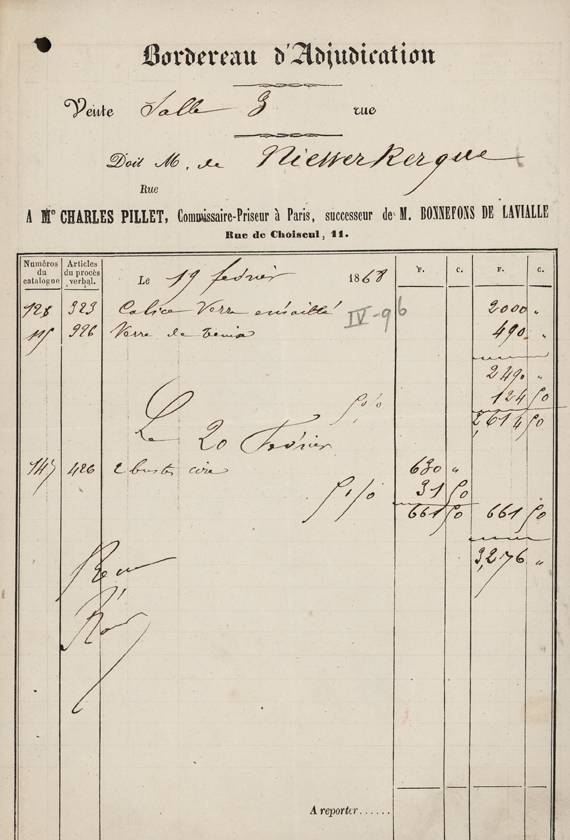 Bordereau d'Adjudication
Vente Salle 3 rue
Doit M. de Niewerkerque
Rue
A Me CHARLES PILLET, Commissaire-Priseur à Paris, successeur de M. BONNEFONS DE LAVIALLE
Rue de Choiseul, 11.
Numéros du catalogue Articles du procès verbal. Le 19 février 1868 F. C. F. C.
128 323 Calice Verre emaillé 2000 "
115 326 Verre de Venise 490 "
IV-96
2490 "
5 % 124 50
2,614 50
Le 20 Février
147 426 2 bustes cire 630 "
5 % 31 50
661 50 661 50
3,276 "
A reporter......